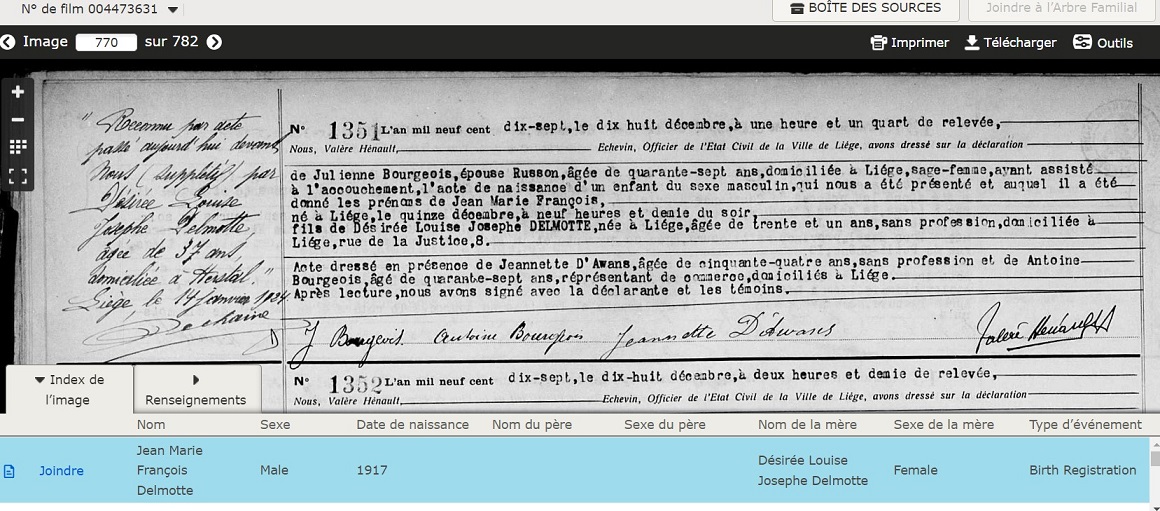 N° de film 004473631
BOÎTE DES SOURCES
Joindre à l'Arbre Familial
Image 770 sur 782
Imprimer
Télécharger
Outils
" Reconnu par acte
passé aujourd'hui devant
Nous (supplétif) par
Désirée Louise
Josephe Delmotte,
âgée de 37 ans,
domiciliée à Herstal."
Liége, le 14 Janvier 1924.
Dechaine
N° 1351 L'an mil neuf cent dix-sept,le dix huit décembre,à une heure et un quart de relevée,
Nous, Valère Hénault, Echevin, Officier de l'Etat Civil de la Ville de Liége, avons dressé sur la déclaration
de Julienne Bourgeois,épouse Russon,âgée de quarante-sept ans,domiciliée à Liége,sage-femme,ayant assisté
à l'accouchement,l'acte de naissance d'un enfant du sexe masculin,qui nous a été présenté et auquel il a été
donné les prénoms de Jean Marie François,
né à Liége,le quinze décembre,à neuf heures et demie du soir,
fils de Désirée Louise Josephe DELMOTTE,née à Liége,âgée de trente et un ans,sans profession,domiciliée à
Liége,rue de la Justice,8.
Acte dressé en présence de Jeannette D'Awans,âgée de cinquante-quatre ans,sans profession et de Antoine
Bourgeois,âgé de quarante-sept ans,réprésentant de commerce,domiciliés à Liége.
Après lecture,nous avons signé avec la déclarante et les témoins.
J Bourgeois. Antoine Bourgeois Jeannette D'Awans Valère Hénault
N° 1352 L'an mil neuf cent dix-sept,le dix-huit décembre,à deux heures et demie de relevée,
Nous, Valère Hénault, Echevin, Officier de l'Etat Civil de la Ville de Liége, avons dressé sur la déclaration
Index de
l'image
Renseignements
Nom Sexe Date de naissance Nom du père Sexe du père Nom de la mère Sexe de la mère Type d'événement
Joindre
Jean Marie
François
Delmotte
Male
1917
Désirée Louise
Josephe Delmotte
Female
Birth Registration